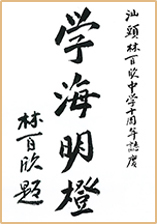 汕頭林百欣中学十周年誌慶
学海明燈
林百欣題